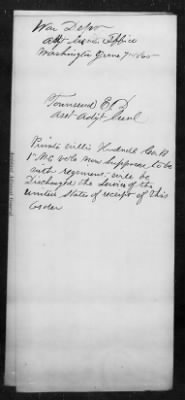 War Dept
Adjt Genls Office
Washington June 7 1865
Townsend E D
Asst Adjt Genl
Private Willis Co. H
1" N C vols now suppose to be
with regiment - will be
Discharged the Service of the
United States of receipt of this
Order